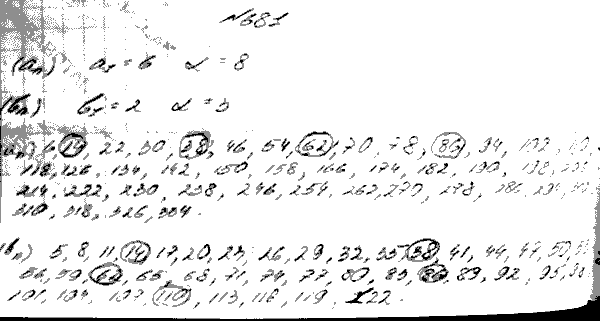 №681
(aₙ) a₁ = 6 d = 8
(bₙ) b₁ = 2 d = 3
6, 14, 22, 30, 38, 46, 54, 62, 70, 78, 86, 94, 102,
118, 126, 134, 142, 150, 158, 166, 174, 182, 190, 198,
214, 222, 230, 238, 246, 254, 262, 270, 278, 286, 294,
310, 318, 326, 334.
(bₙ) 5, 8, 11, 14, 17, 20, 23, 26, 29, 32, 35, 38, 41, 44, 47, 50,
56, 59, 62, 65, 68, 71, 74, 77, 80, 83, 86, 89, 92, 95,
101, 104, 107, 110, 113, 116, 119, 122.